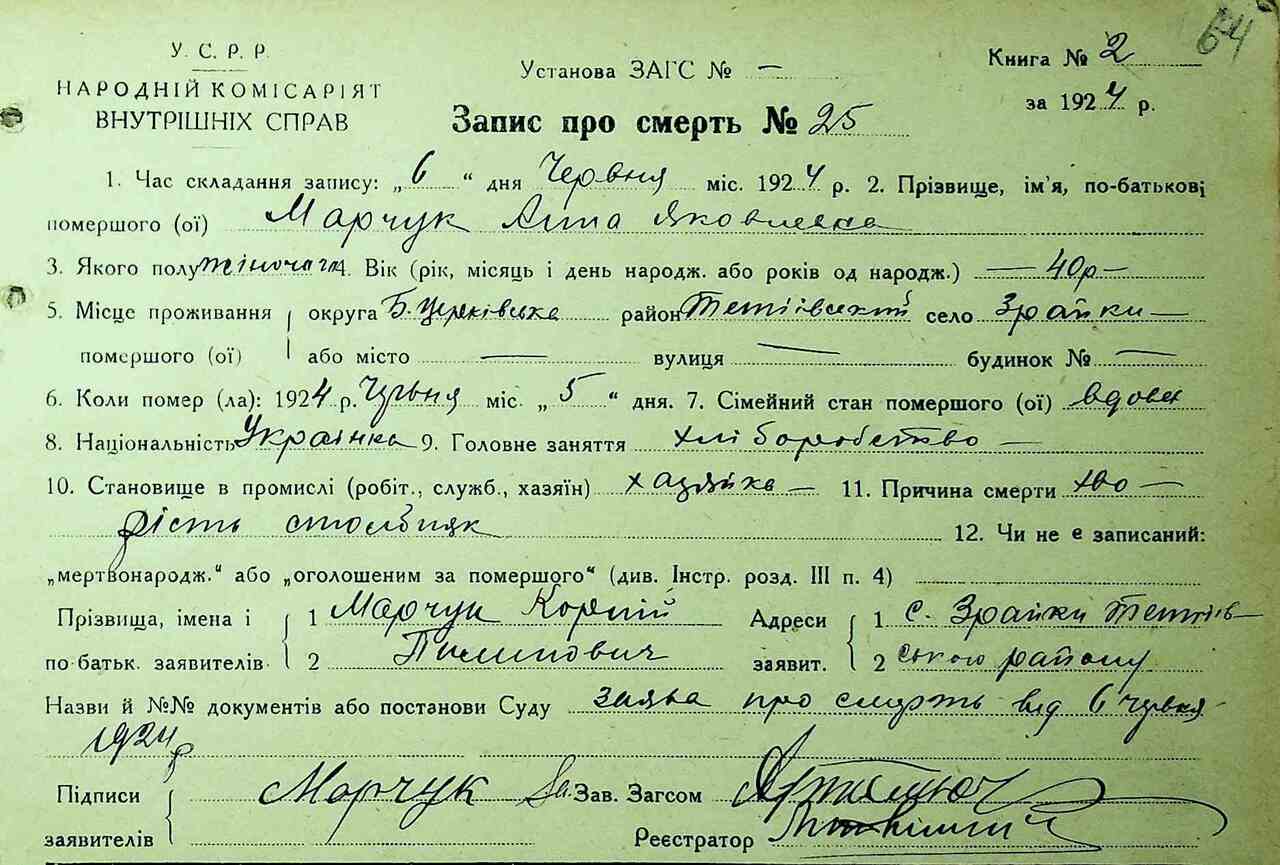 64
У. С. Р. Р.
НАРОДНІЙ КОМІСАРІЯТ
ВНУТРІШНІХ СПРАВ
Установа ЗАГС № —
Книга № 2
за 1924 р.
Запис про смерть № 25
1. Час складання запису: „ 6 “ дня Червня міс. 1924 р. 2. Прізвище, ім'я, по-батькові
помершого (ої) Марчук Анна Яковлевна
3. Якого полу жіночаго 4. Вік (рік, місяць і день народж. або років од народж.) — 40 р —
5. Місце проживання округа Б. Церківська район Тетіівський село Зрайки —
помершого (ої) або місто — вулиця — будинок № —
6. Коли помер (ла): 1924 р. Червня міс. „ 5 “ дня. 7. Сімейний стан помершого (ої) вдова
8. Національність Українка 9. Головне заняття хліборобство —
10. Становище в промислі (робіт., служб., хазяїн) хазяйка — 11. Причина смерти хво —
рість столбняк 12. Чи не є записаний:
„мертвонародж.“ або „оголошеним за помершого“ (див. Інстр. розд. III п. 4)
Прізвища, імена і 1 Марчук Корній Адреси 1 с. Зрайки Тетіїв—
по-батьк. заявителів 2 Пилипович заявит. 2 ського району
Назви й №№ документів або постанови Суду заява про смерть від 6 червня
1924 р
Підписи Марчук За Зав. Загсом
заявителів Реєстратор